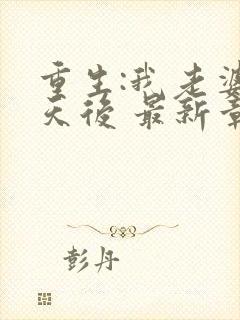 重生:我老婆
天後 最新章
彭丹